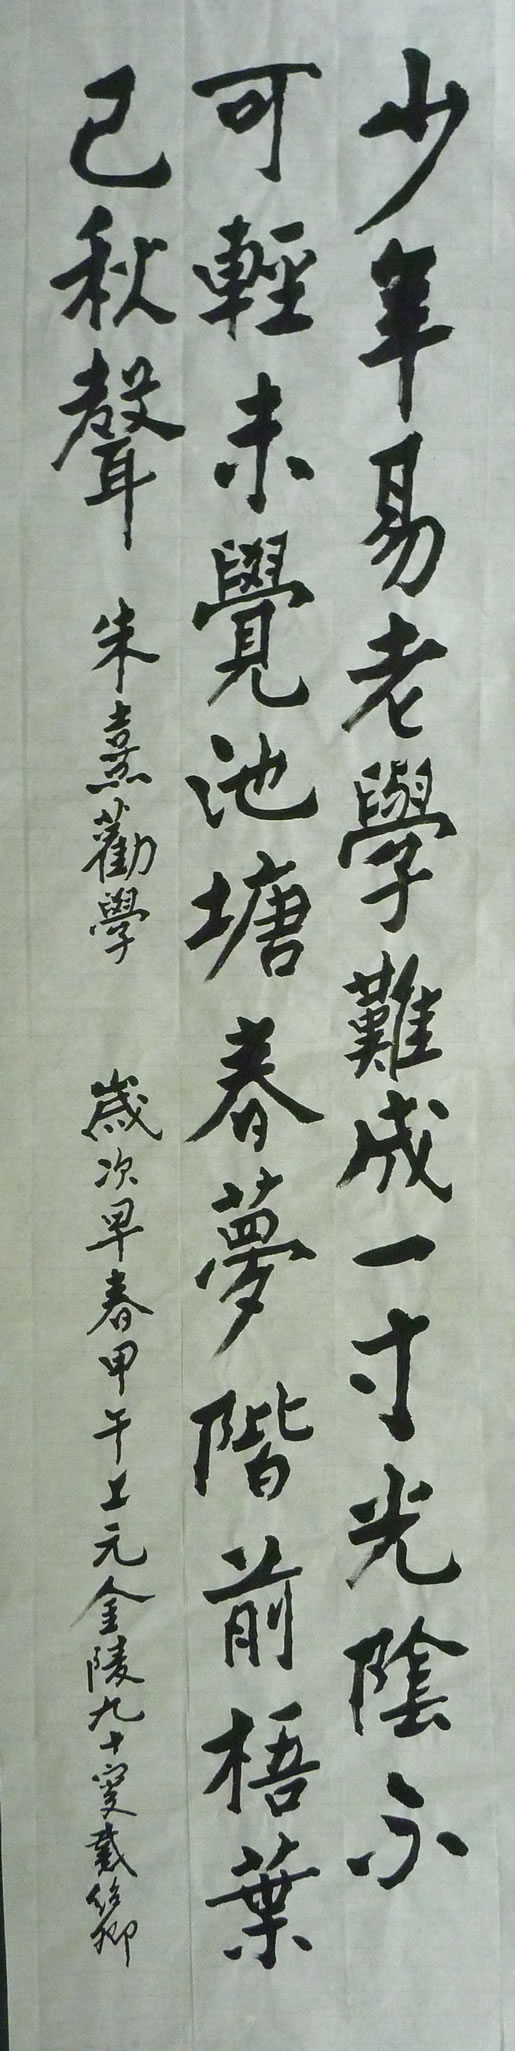 少年易老學難成一寸光陰不
可輕未覺池塘春夢階前梧葉
已秋聲 朱熹勸學 歲次早春甲午上元金陵九十叟戴紹卿